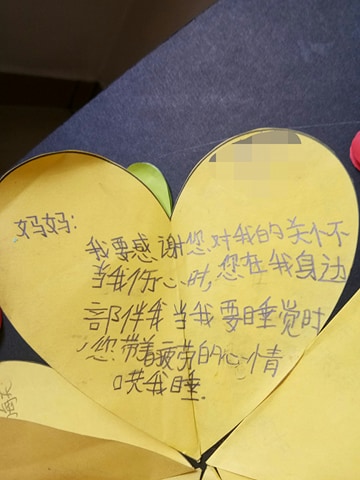 妈妈:
我要感谢您对我的关个不
当我伤心时,您在我身边
部伴我当我要睡觉时
,您带着疲劳的心情
哄我睡.